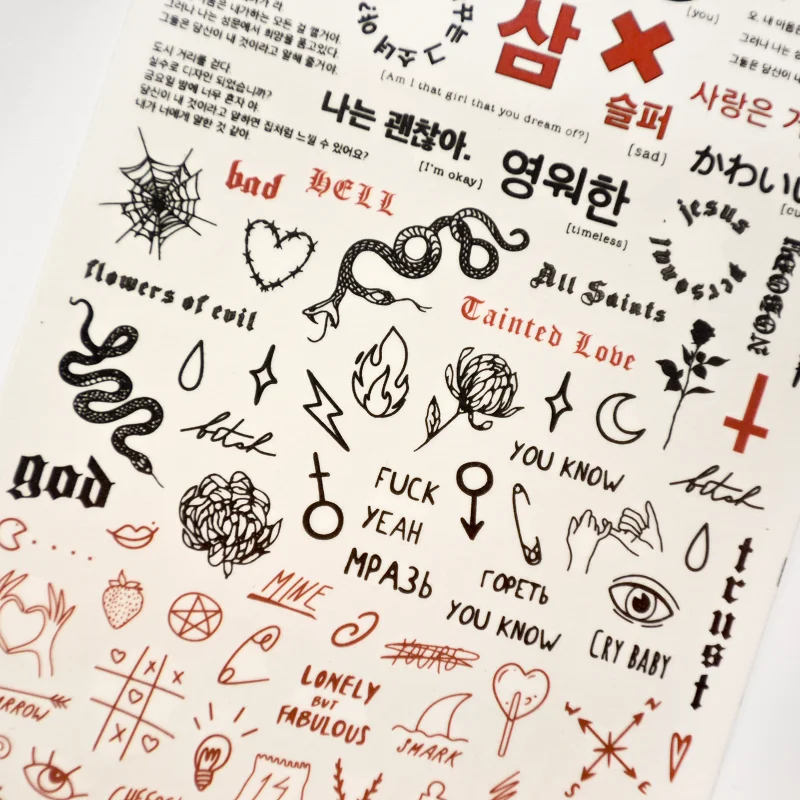 그러나 나는 성문에서 희망을 품고있다.
그들은 당신이 내 것이라고 말해 줄거야.
도시 거리를 걷다.
실수로 디자인 되었습니까?
금요일 밤에 너무 혼자 야.
당신이 내 것이라고 말하면 집처럼 느낄 수 있어요?
내가 너에게 말한 것 같아.
소녀야?
[Am I that girl that you dream of?]
삼
[you]
오, 내 마음은
그러나 나는
그들은 당신이
슬퍼
[sad]
사랑은
나는 괜찮아.
[I'm okay]
영원한
[timeless]
かわいい
bad
HELL
jesus
personal
flowers of evil
All Saints
Tainted Love
bitch
god
YOU KNOW
bitch
FUCK
YEAH
МРАЗЬ
ГОРЕТЬ
YOU KNOW
CRY BABY
trust
MINE
YOURS
LONELY
BUT
FABULOUS
SHARK
ARROW
N
W
E
S
14